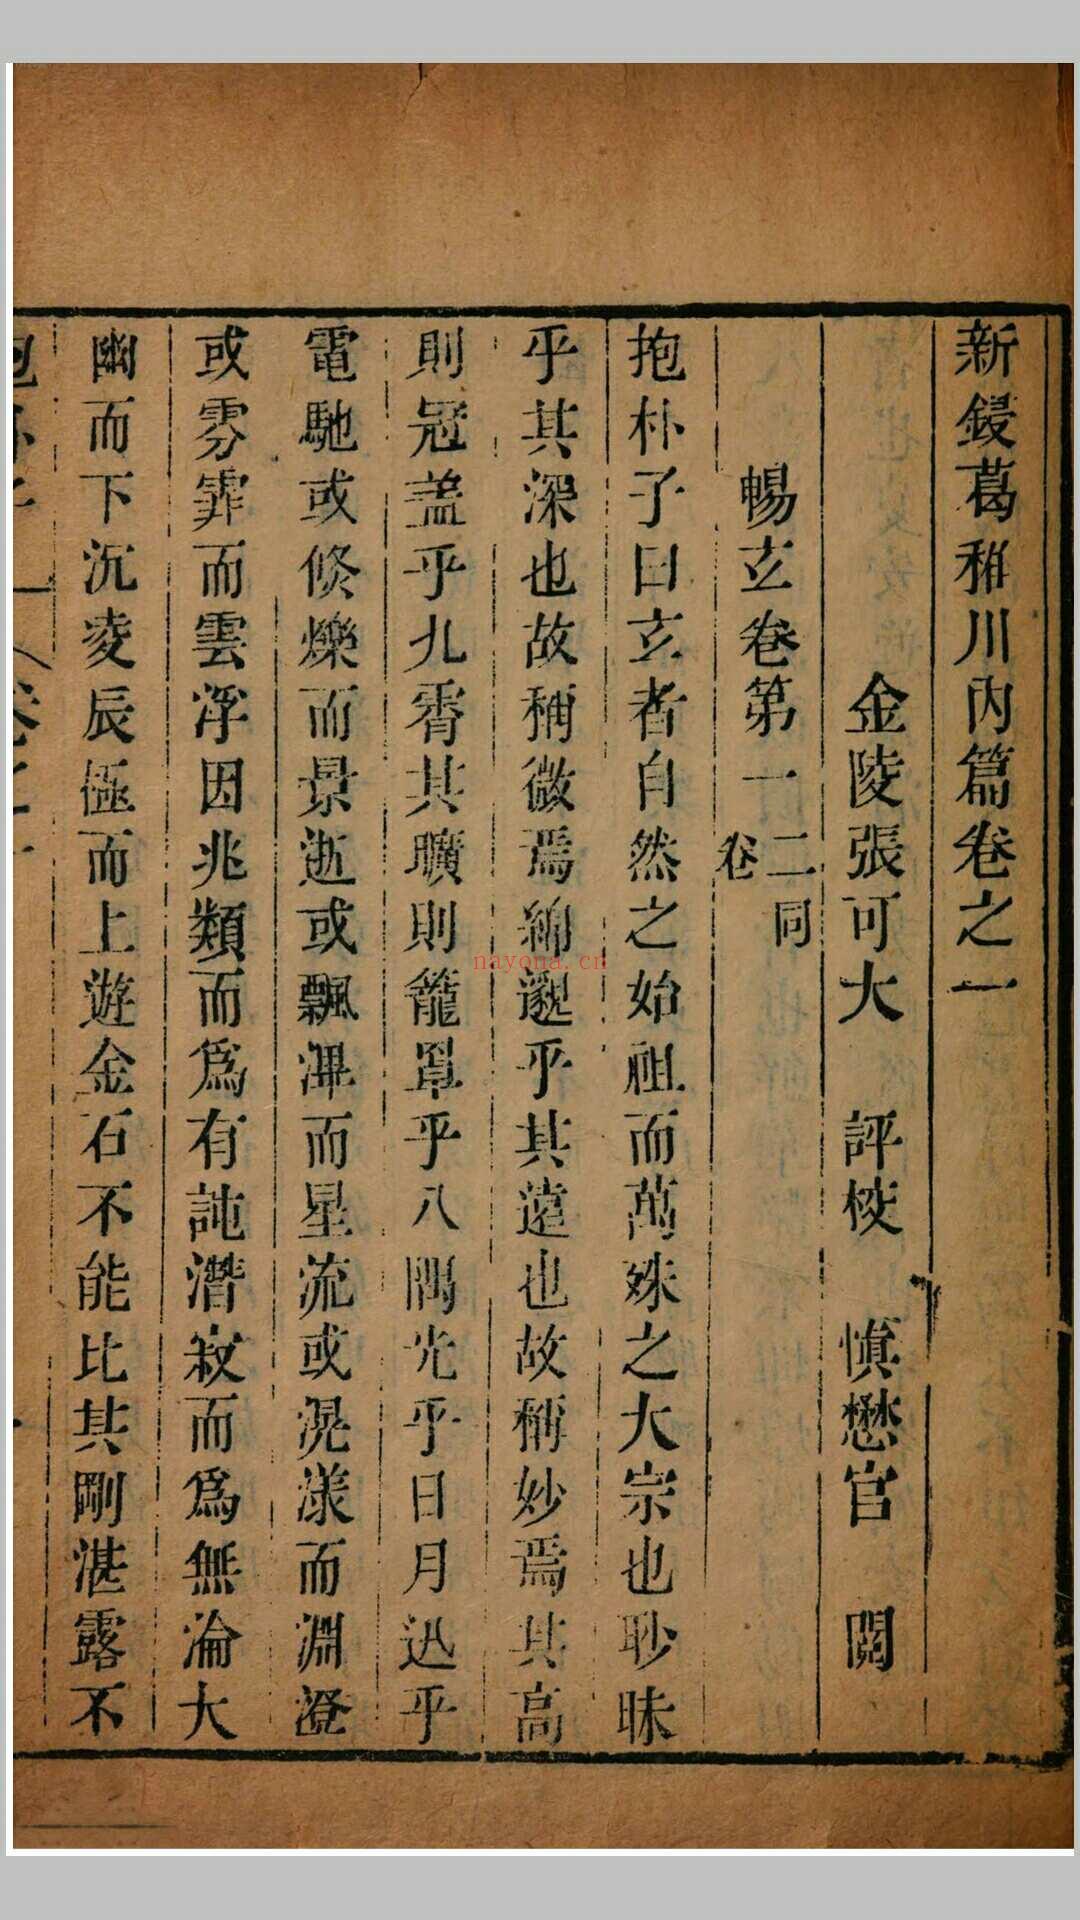 新鋟葛稚川內篇卷之一
金陵張可大 評校 慎懋官 閱
暢玄卷第一 二同卷
抱朴子曰玄者自然之始祖而萬殊之大宗也眇昧
乎其深也故稱微焉綿邈乎其遠也故稱妙焉其高
則冠蓋乎九霄其曠則籠罩乎八隅光乎日月迅乎
電馳或倏爍而景逝或飄滭而星流或滉漾而淵澄
或雰霏而雲浮因兆類而為有託潛寂而為無淪大
幽而下沉凌辰極而上遊金石不能比其剛湛露不
nayona.cn